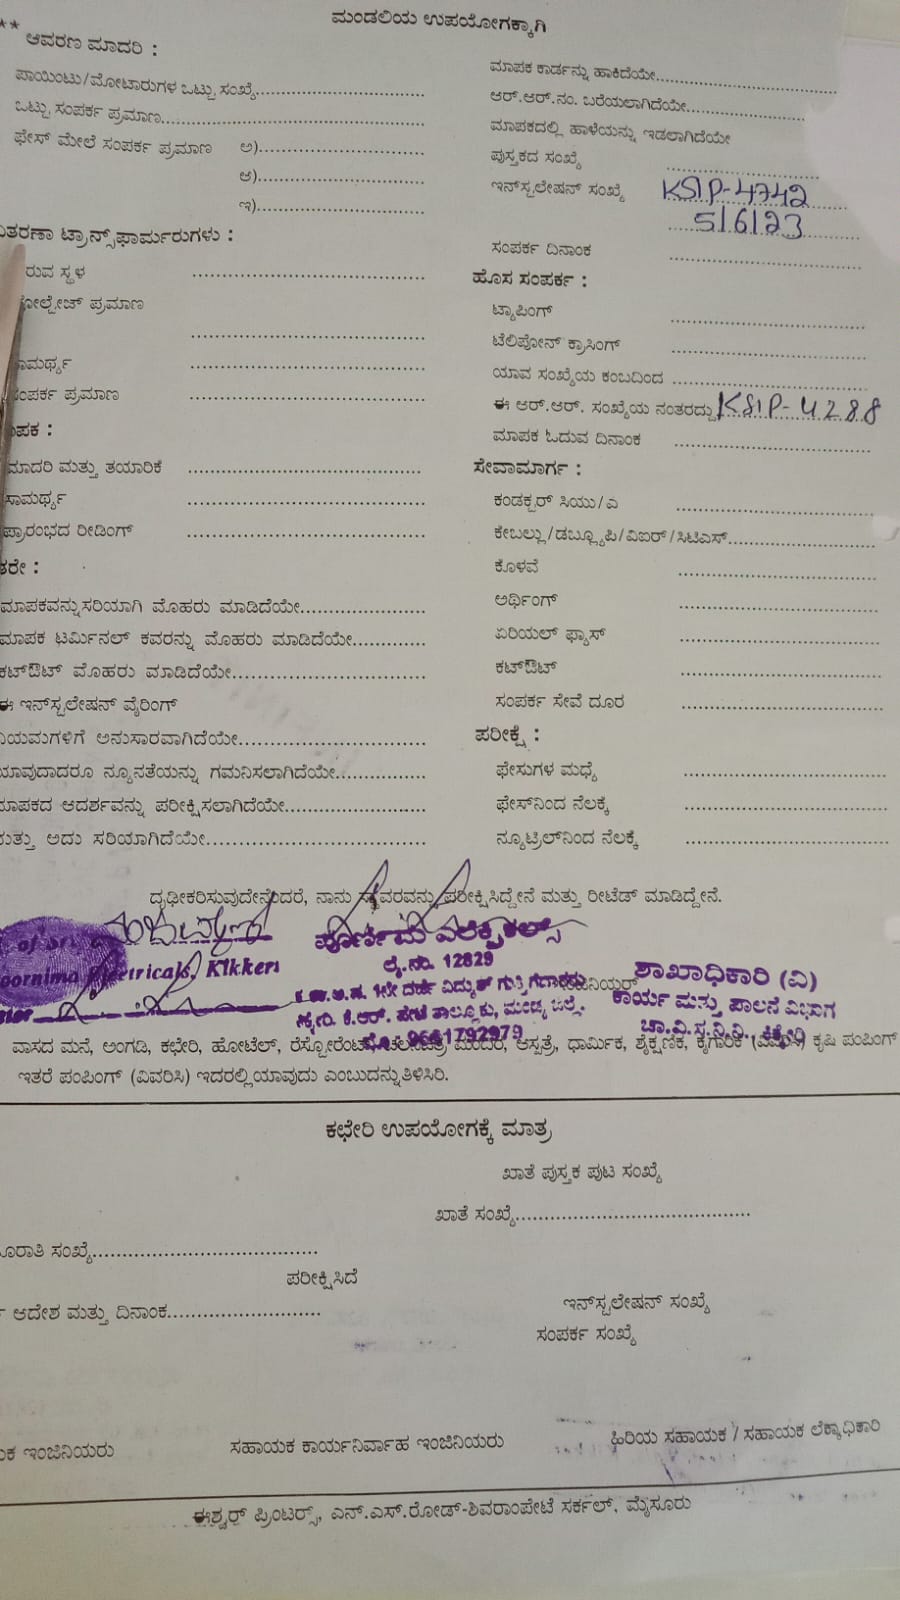 ಮಂಡಲಿಯ ಉಪಯೋಗಕ್ಕಾಗಿ
** ಆವರಣ ಮಾದರಿ :
ಪಾಯಿಂಟು/ಮೋಟಾರುಗಳ ಒಟ್ಟು ಸಂಖ್ಯೆ
ಒಟ್ಟು ಸಂಪರ್ಕ ಪ್ರಮಾಣ
ಫೇಸ್ ಮೇಲೆ ಸಂಪರ್ಕ ಪ್ರಮಾಣ ಅ)
ಆ)
ಇ)
ವಿತರಣಾ ಟ್ರಾನ್ಸ್‌ಫಾರ್ಮರುಗಳು :
ರುವ ಸ್ಥಳ
ೋಲ್ಟೇಜ್ ಪ್ರಮಾಣ
ಸಾಮರ್ಥ್ಯ
ಸಂಪರ್ಕ ಪ್ರಮಾಣ
ಾಪಕ :
ಮಾದರಿ ಮತ್ತು ತಯಾರಿಕೆ
ಸಾಮರ್ಥ್ಯ
ಪ್ರಾರಂಭದ ರೀಡಿಂಗ್
ತರೇ :
ಮಾಪಕವನ್ನು ಸರಿಯಾಗಿ ಮೊಹರು ಮಾಡಿದೆಯೇ
ಮಾಪಕ ಟರ್ಮಿನಲ್ ಕವರನ್ನು ಮೊಹರು ಮಾಡಿದೆಯೇ
ಕಟ್‌ಔಟ್ ಮೊಹರು ಮಾಡಿದೆಯೇ
ಈ ಇನ್‌ಸ್ಟಲೇಷನ್ ವೈರಿಂಗ್
ನಿಯಮಗಳಿಗೆ ಅನುಸಾರವಾಗಿದೆಯೇ
ಯಾವುದಾದರೂ ನ್ಯೂನತೆಯನ್ನು ಗಮನಿಸಲಾಗಿದೆಯೇ
ಮಾಪಕದ ಆದರ್ಶವನ್ನು ಪರೀಕ್ಷಿಸಲಾಗಿದೆಯೇ
ಮತ್ತು ಅದು ಸರಿಯಾಗಿದೆಯೇ
ಮಾಪಕ ಕಾರ್ಡನ್ನು ಹಾಕಿದೆಯೇ
ಆರ್.ಆರ್.ನಂ. ಬರೆಯಲಾಗಿದೆಯೇ
ಮಾಪಕದಲ್ಲಿ ಹಾಳೆಯನ್ನು ಇಡಲಾಗಿದೆಯೇ
ಪುಸ್ತಕದ ಸಂಖ್ಯೆ
ಇನ್‌ಸ್ಟಲೇಷನ್ ಸಂಖ್ಯೆ KSIP-4742
5/6/23
ಸಂಪರ್ಕ ದಿನಾಂಕ
ಹೊಸ ಸಂಪರ್ಕ :
ಟ್ಯಾಪಿಂಗ್
ಟೆಲಿಪೋನ್ ಕ್ರಾಸಿಂಗ್
ಯಾವ ಸಂಖ್ಯೆಯ ಕಂಬದಿಂದ
ಈ ಆರ್.ಆರ್. ಸಂಖ್ಯೆಯ ನಂತರದ್ದು KSIP-4288
ಮಾಪಕ ಓದುವ ದಿನಾಂಕ
ಸೇವಾಮಾರ್ಗ :
ಕಂಡಕ್ಟರ್ ಸಿಯು/ಎ
ಕೇಬಲ್ಲು/ಡಬ್ಲ್ಯೂಪಿ/ವಿಐರ್/ಸಿಟಿಎಸ್
ಕೊಳವೆ
ಅರ್ಥಿಂಗ್
ಏರಿಯಲ್ ಫ್ಯೂಸ್
ಕಟ್‌ಔಟ್
ಸಂಪರ್ಕ ಸೇವೆ ದೂರ
ಪರೀಕ್ಷೆ :
ಫೇಸುಗಳ ಮಧ್ಯೆ
ಫೇಸ್‌ನಿಂದ ನೆಲಕ್ಕೆ
ನ್ಯೂಟ್ರಲ್‌ನಿಂದ ನೆಲಕ್ಕೆ
ದೃಢೀಕರಿಸುವುದೇನೆಂದರೆ, ನಾನು ಸ್ಥಾವರವನ್ನು ಪರೀಕ್ಷಿಸಿದ್ದೇನೆ ಮತ್ತು ರೀಟೆಡ್ ಮಾಡಿದ್ದೇನೆ.
Poornima Electricals, Kikkeri
ಪೂರ್ಣಿಮ ಎಲೆಕ್ಟ್ರಿಕಲ್ಸ್
ಲೈ.ನಂ. 12829
1ನೇ ದರ್ಜೆ ವಿದ್ಯುತ್ ಗುತ್ತಿಗೆದಾರರು
ಕೆ.ಆರ್. ಪೇಟೆ ತಾಲ್ಲೂಕು, ಮಂಡ್ಯ ಜಿಲ್ಲೆ.
ಮೊ: 9661792979
ಶಾಖಾಧಿಕಾರಿ (ವಿ)
ಕಾರ್ಯ ಮತ್ತು ಪಾಲನೆ ವಿಭಾಗ
ಚಾ.ವಿ.ಸ.ನಿ.ನಿ., ಕಿಕ್ಕೇರಿ
ವಾಸದ ಮನೆ, ಅಂಗಡಿ, ಕಛೇರಿ, ಹೋಟೆಲ್, ರೆಸ್ಟೋರೆಂಟ್, ಚಲನಚಿತ್ರ ಮಂದಿರ, ಆಸ್ಪತ್ರೆ, ಧಾರ್ಮಿಕ, ಶೈಕ್ಷಣಿಕ, ಕೈಗಾರಿಕೆ (ವಿವರಿಸಿ) ಕೃಷಿ ಪಂಪಿಂಗ್
ಇತರೆ ಪಂಪಿಂಗ್ (ವಿವರಿಸಿ) ಇದರಲ್ಲಿ ಯಾವುದು ಎಂಬುದನ್ನು ತಿಳಿಸಿರಿ.
ಕಛೇರಿ ಉಪಯೋಗಕ್ಕೆ ಮಾತ್ರ
ಖಾತೆ ಪುಸ್ತಕ ಪುಟ ಸಂಖ್ಯೆ
ಖಾತೆ ಸಂಖ್ಯೆ
ೂರಾತಿ ಸಂಖ್ಯೆ
ಪರೀಕ್ಷಿಸಿದೆ
ಆದೇಶ ಮತ್ತು ದಿನಾಂಕ
ಇನ್‌ಸ್ಟಲೇಷನ್ ಸಂಖ್ಯೆ
ಸಂಪರ್ಕ ಸಂಖ್ಯೆ
ಯಕ ಇಂಜಿನಿಯರು
ಸಹಾಯಕ ಕಾರ್ಯನಿರ್ವಾಹ ಇಂಜಿನಿಯರು
ಹಿರಿಯ ಸಹಾಯಕ / ಸಹಾಯಕ ಲೆಕ್ಕಾಧಿಕಾರಿ
ಈಶ್ವರ್ ಪ್ರಿಂಟರ್ಸ್, ಎನ್.ಎಸ್.ರೋಡ್-ಶಿವರಾಂಪೇಟೆ ಸರ್ಕಲ್, ಮೈಸೂರು